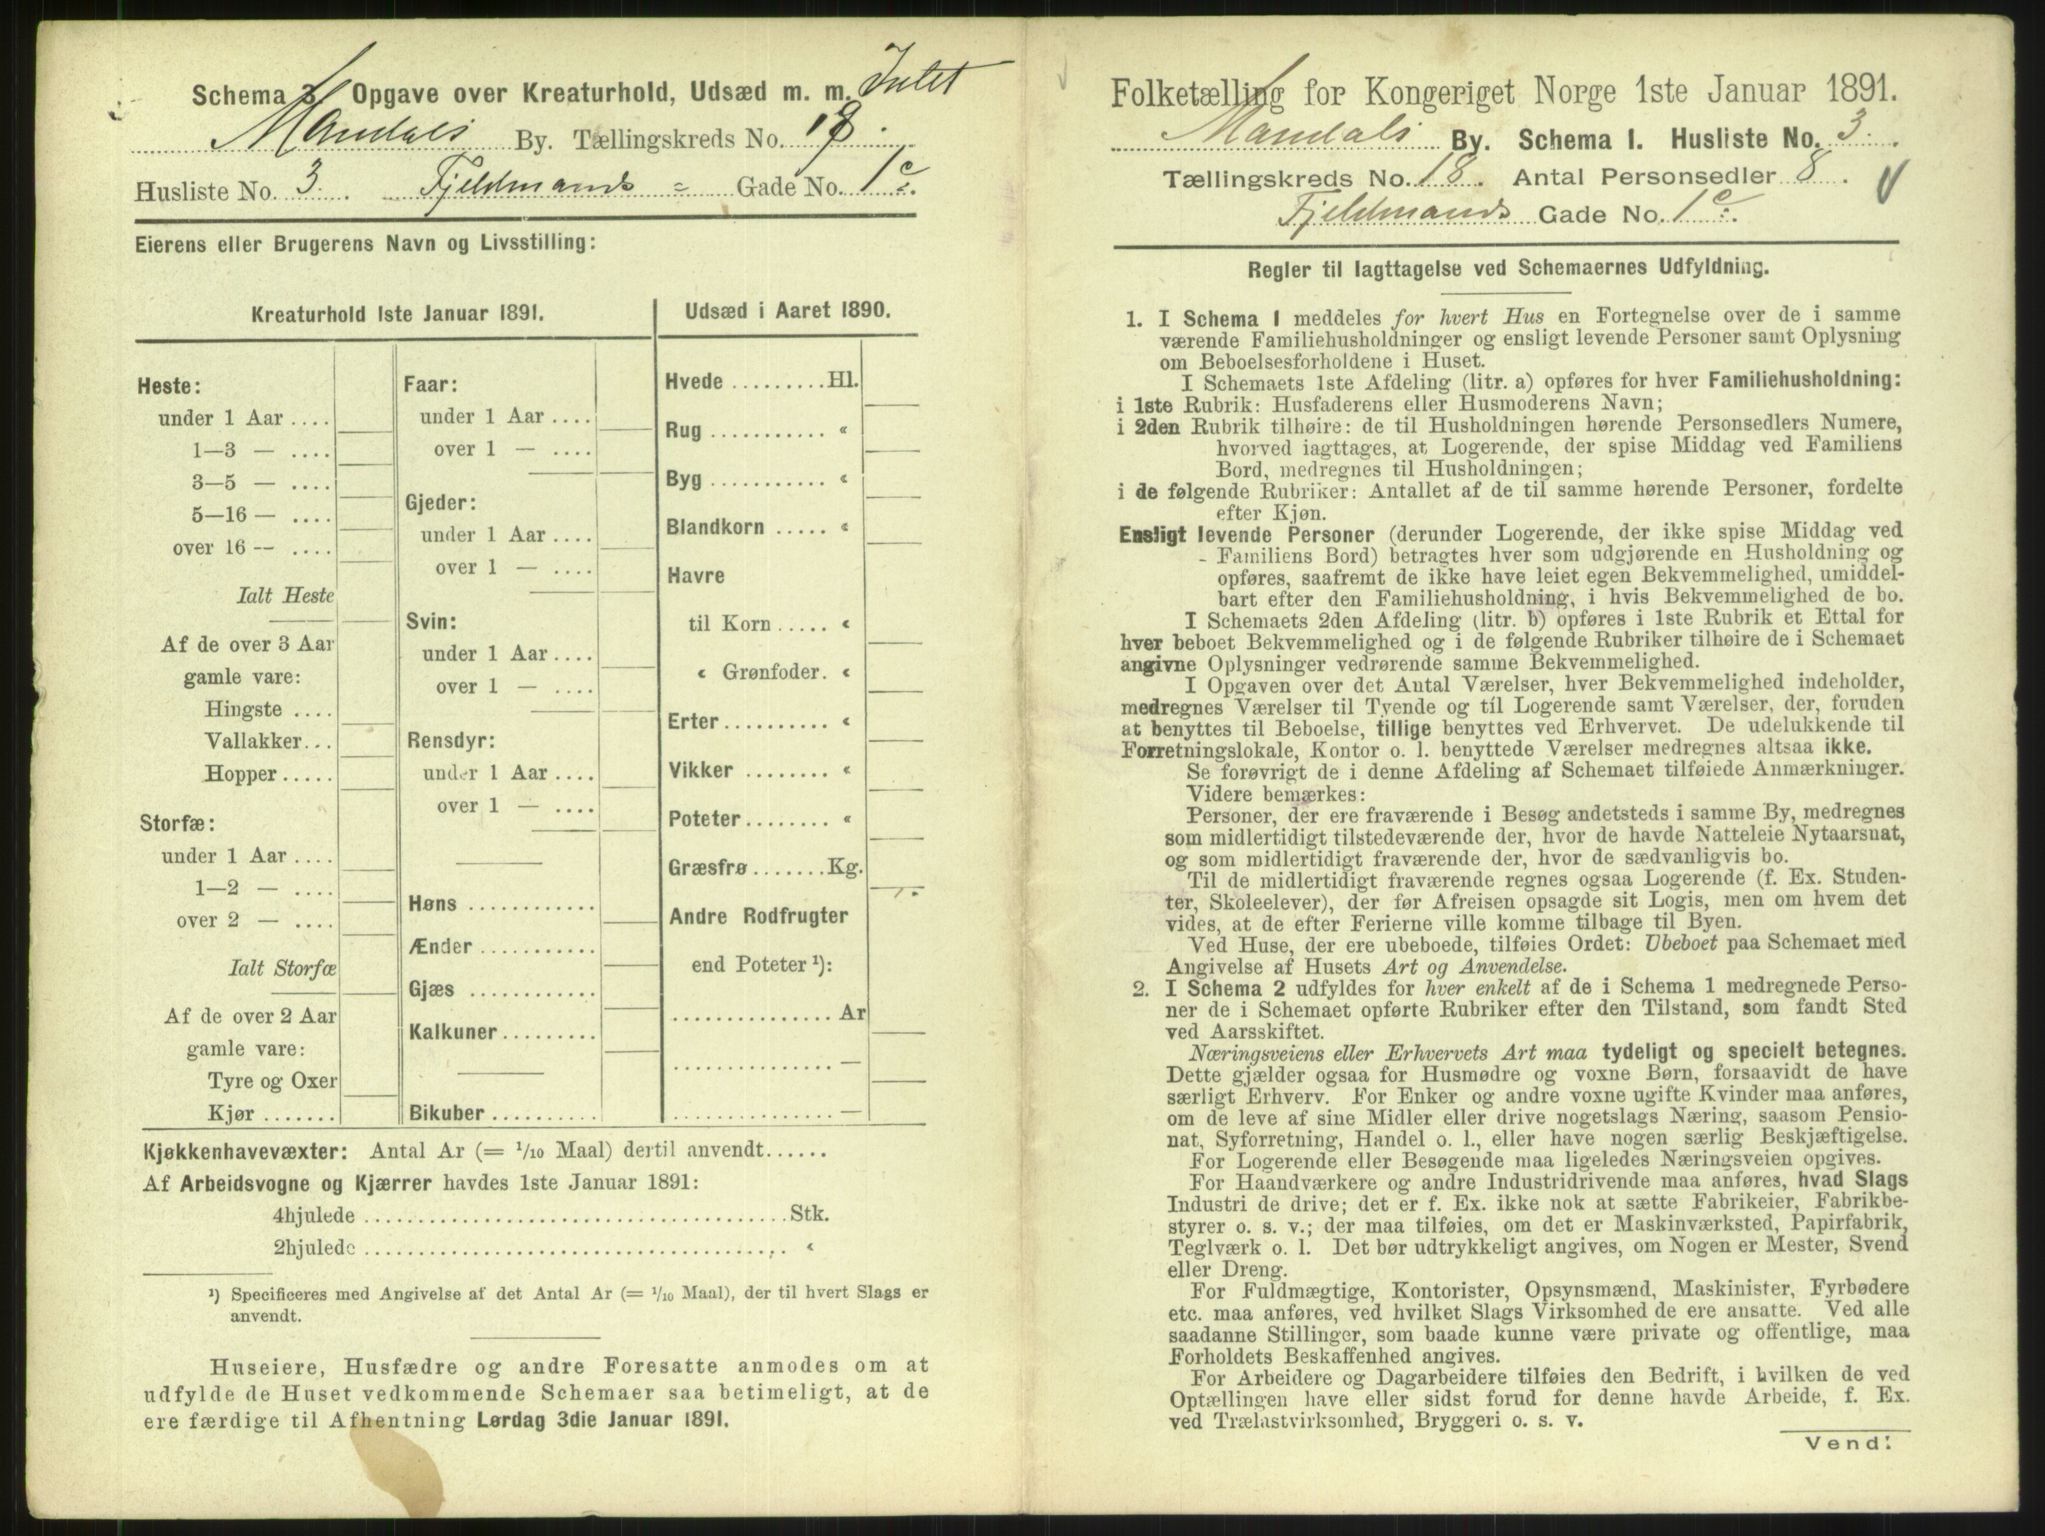 Schema 3. Opgave over Kreaturhold, Udsæd m. m. Intet
Mandals By. Tællingskreds No. 18.
Husliste No. 3. Fjeldmands- Gade No. 1c.
Eierens eller Brugerens Navn og Livsstilling:
Kreaturhold 1ste Januar 1891.
Heste:
under 1 Aar ....
1—3 — ....
3—5 — ....
5—16 — ....
over 16 — ....
Ialt Heste
Af de over 3 Aar
gamle vare:
Hingste ....
Vallakker...
Hopper.....
Storfæ:
under 1 Aar ....
1—2 — ....
over 2 — ....
Ialt Storfæ
Af de over 2 Aar
gamle vare:
Tyre og Oxer
Kjør .......
Faar:
under 1 Aar ....
over 1 — ....
Gjeder:
under 1 Aar ....
over 1 — ....
Svin:
under 1 Aar ....
over 1 — ....
Rensdyr:
under 1 Aar ....
over 1 — ....
Høns ............
Ænder ...........
Gjæs ............
Kalkuner .........
Bikuber ..........
Udsæd i Aaret 1890.
Hvede .........Hl.
Rug ........... «
Byg ........... «
Blandkorn ..... «
Havre
til Korn ..... «
« Grønfoder. «
Erter .......... «
Vikker ......... «
Poteter ........ «
Græsfrø .......Kg.
Andre Rodfrugter
end Poteter ¹):
............... Ar
............... —
............... —
Kjøkkenhavevæxter: Antal Ar (= 1/10 Maal) dertil anvendt......
Af Arbeidsvogne og Kjærrer havdes 1ste Januar 1891:
4hjulede .......................................Stk.
2hjulede ....................................... «
¹) Specificeres med Angivelse af det Antal Ar (= 1/10 Maal), der til hvert Slags er
anvendt.
Huseiere, Husfædre og andre Foresatte anmodes om at
udfylde de Huset vedkommende Schemaer saa betimeligt, at de
ere færdige til Afhentning Lørdag 3die Januar 1891.
Folketælling for Kongeriget Norge 1ste Januar 1891.
Mandals By. Schema 1. Husliste No. 3.
Tællingskreds No. 18. Antal Personsedler 8.
Fjeldmands Gade No. 1c.
Regler til Iagttagelse ved Schemaernes Udfyldning.
1. I Schema 1 meddeles for hvert Hus en Fortegnelse over de i samme
værende Familiehusholdninger og ensligt levende Personer samt Oplysning
om Beboelsesforholdene i Huset.
I Schemaets 1ste Afdeling (litr. a) opføres for hver Familiehusholdning:
i 1ste Rubrik: Husfaderens eller Husmoderens Navn;
i 2den Rubrik tilhøire: de til Husholdningen hørende Personsedlers Numere,
hvorved iagttages, at Logerende, der spise Middag ved Familiens
Bord, medregnes til Husholdningen;
i de følgende Rubriker: Antallet af de til samme hørende Personer, fordelte
efter Kjøn.
Ensligt levende Personer (derunder Logerende, der ikke spise Middag ved
Familiens Bord) betragtes hver som udgjørende en Husholdning og
opføres, saafremt de ikke have leiet egen Bekvemmelighed, umiddel-
bart efter den Familiehusholdning, i hvis Bekvemmelighed de bo.
I Schemaets 2den Afdeling (litr. b) opføres i 1ste Rubrik et Ettal for
hver beboet Bekvemmelighed og i de følgende Rubriker tilhøire de i Schemaet
angivne Oplysninger vedrørende samme Bekvemmelighed.
I Opgaven over det Antal Værelser, hver Bekvemmelighed indeholder,
medregnes Værelser til Tyende og til Logerende samt Værelser, der, foruden
at benyttes til Beboelse, tillige benyttes ved Erhvervet. De udelukkende til
Forretningslokale, Kontor o. l. benyttede Værelser medregnes altsaa ikke.
Se forøvrigt de i denne Afdeling af Schemaet tilføiede Anmærkninger.
Videre bemærkes:
Personer, der ere fraværende i Besøg andetsteds i samme By, medregnes
som midlertidigt tilstedeværende der, hvor de havde Natteleie Nytaarsnat,
og som midlertidigt fraværende der, hvor de sædvanligvis bo.
Til de midlertidigt fraværende regnes ogsaa Logerende (f. Ex. Studen-
ter, Skoleelever), der før Afreisen opsagde sit Logis, men om hvem det
vides, at de efter Ferierne ville komme tilbage til Byen.
Ved Huse, der ere ubeboede, tilføies Ordet: Ubeboet paa Schemaet med
Angivelse af Husets Art og Anvendelse.
2. I Schema 2 udfyldes for hver enkelt af de i Schema 1 medregnede Perso-
ner de i Schemaet opførte Rubriker efter den Tilstand, som fandt Sted
ved Aarsskiftet.
Næringsveiens eller Erhvervets Art maa tydeligt og specielt betegnes.
Dette gjælder ogsaa for Husmødre og voxne Børn, forsaavidt de have
særligt Erhverv. For Enker og andre voxne ugifte Kvinder maa anføres,
om de leve af sine Midler eller drive nogetslags Næring, saasom Pensio-
nat, Syforretning, Handel o. l., eller have nogen særlig Beskjæftigelse.
For Logerende eller Besøgende maa ligeledes Næringsveien opgives.
For Haandværkere og andre Industridrivende maa anføres, hvad Slags
Industri de drive; det er f. Ex. ikke nok at sætte Fabrikeier, Fabrikbe-
styrer o. s. v.; der maa tilføies, om det er Maskinværksted, Papirfabrik,
Teglværk o. l. Det bør udtrykkeligt angives, om Nogen er Mester, Svend
eller Dreng.
For Fuldmægtige, Kontorister, Opsynsmænd, Maskinister, Fyrbødere
etc. maa anføres, ved hvilket Slags Virksomhed de ere ansatte. Ved alle
saadanne Stillinger, som baade kunne være private og offentlige, maa
Forholdets Beskaffenhed angives.
For Arbeidere og Dagarbeidere tilføies den Bedrift, i hvilken de ved
Optællingen have eller sidst forud for denne havde Arbeide, f. Ex.
ved Trælastvirksomhed, Bryggeri o. s. v.
Vend!